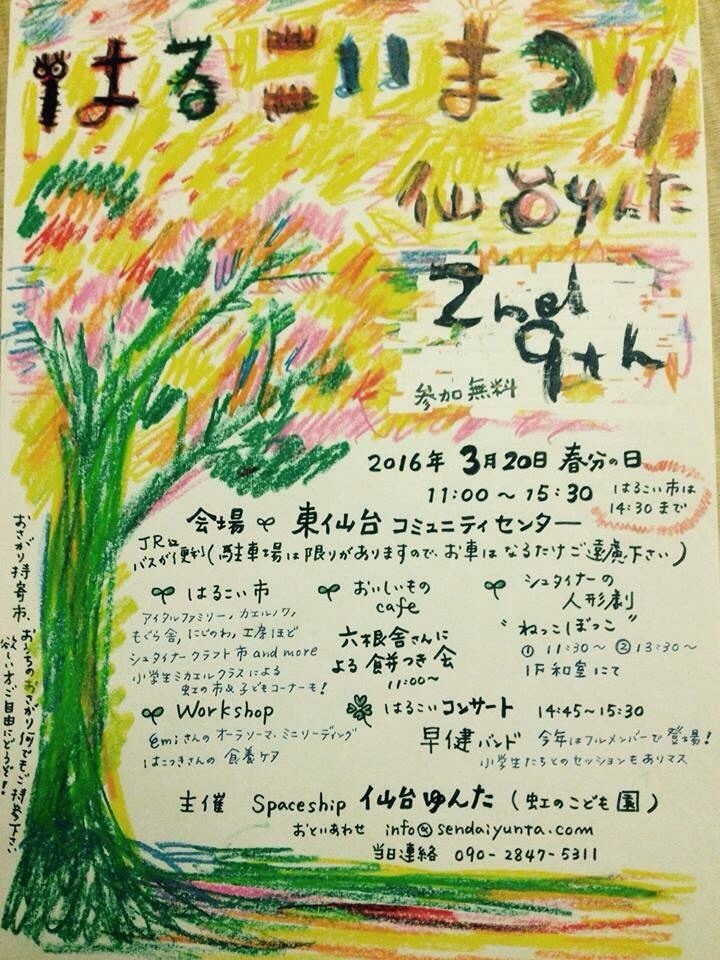 はるこいまつり
仙台ゆんた
2nd
9th
参加無料
2016年 3月20日 春分の日
11:00～15:30
はるこい市は
14:30まで
会場 東仙台 コミュニティセンター
JR又は
バスが便利(駐車場は限りがありますので、お車はなるたけご遠慮下さい)
はるこい市
アイタルファミリー、カエルノワ、
もぐら舎、にじのわ、工房ほど
シュタイナークラフト市 and more
小学生ミカエルクラスによる
虹の市&子どもコーナーも!
おいしいもの
cafe
六根舎さんに
よる 餅つき会
11:00～
シュタイナーの
人形劇
"ねっこぼっこ"
① 11:30～ ② 13:30～
1F和室にて
Workshop
emiさんのオーラソーマ、ミニリーディング
はこつきさんの 食養ケア
はるこいコンサート 14:45～15:30
早健バンド 今年はフルメンバーで登場!
小学生たちとのセッションもありマス
主催 Spaceship 仙台ゆんた (虹のこども園)
おといあわせ info@sendaiyunta.com
当日連絡 090-2847-5311
おさがり持寄市、おうちのおさがり何でもご持参下さい
欲しい方ご自由にどうぞ!